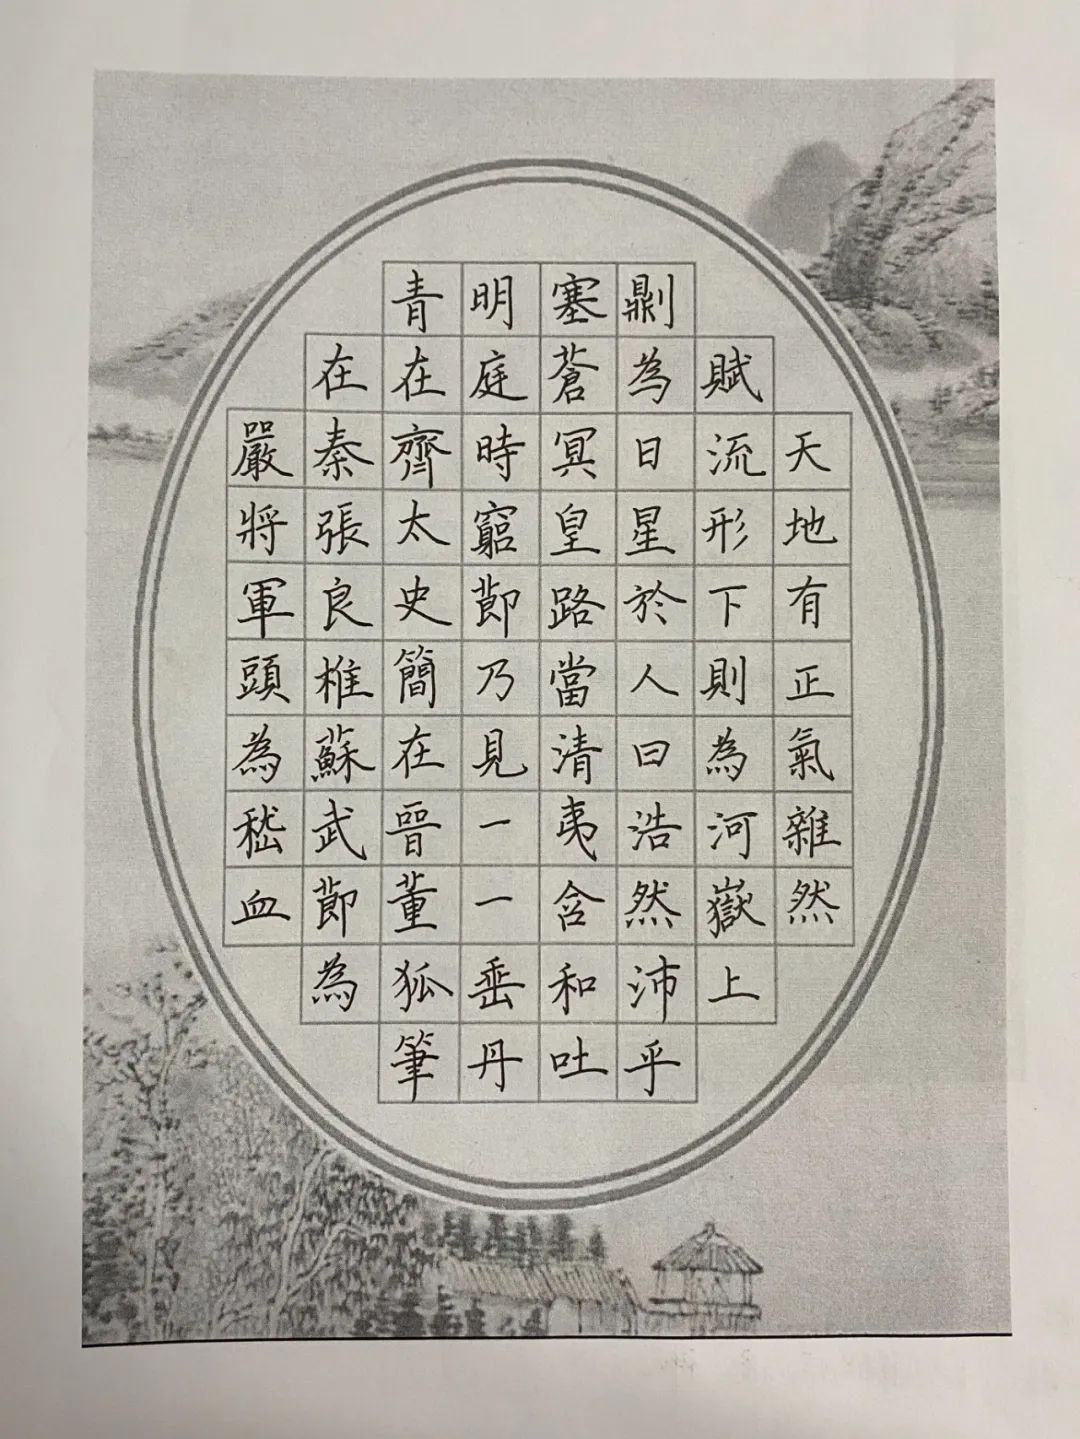 天地有正氣雜然
賦流形下則為河嶽上
𠟭為日星於人曰浩然沛乎
塞蒼冥皇路當清夷含和吐
明庭時窮莭乃見一一垂丹
青在齊太史簡在晉董狐筆
在秦張良椎蘇武莭為
嚴將軍頭為嵇血